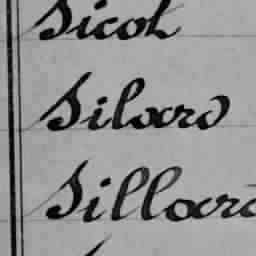 Sicot
Silard
Sillard